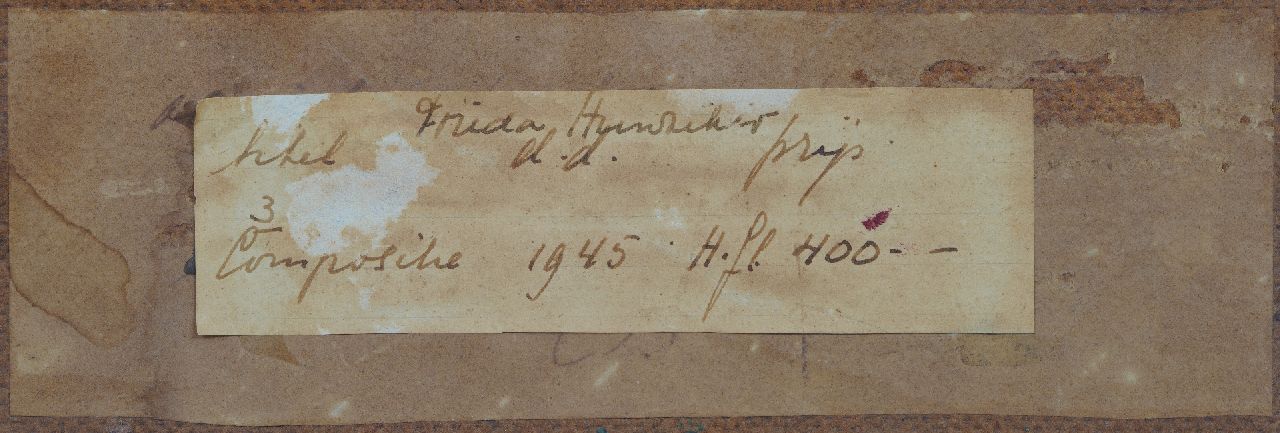 Frieda Hunziker
titel d.d. prijs
3
Compositie 1945 H.fl. 400--